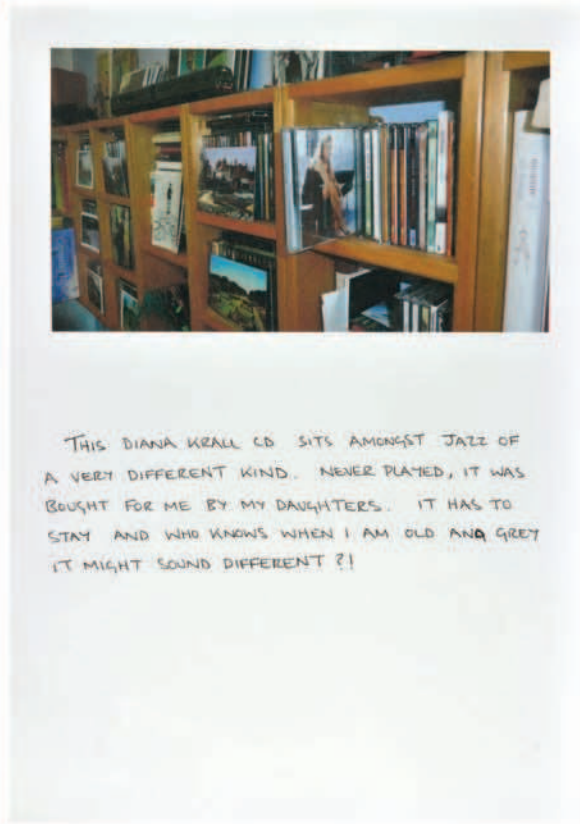 THIS DIANA KRALL CD SITS AMONGST JAZZ OF
A VERY DIFFERENT KIND. NEVER PLAYED, IT WAS
BOUGHT FOR ME BY MY DAUGHTERS. IT HAS TO
STAY AND WHO KNOWS WHEN I AM OLD AND GREY
IT MIGHT SOUND DIFFERENT?!